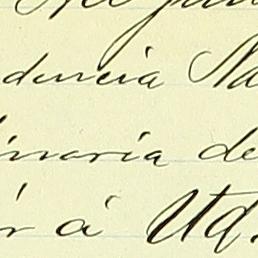 dencia Na
inaria de
r á Ud.